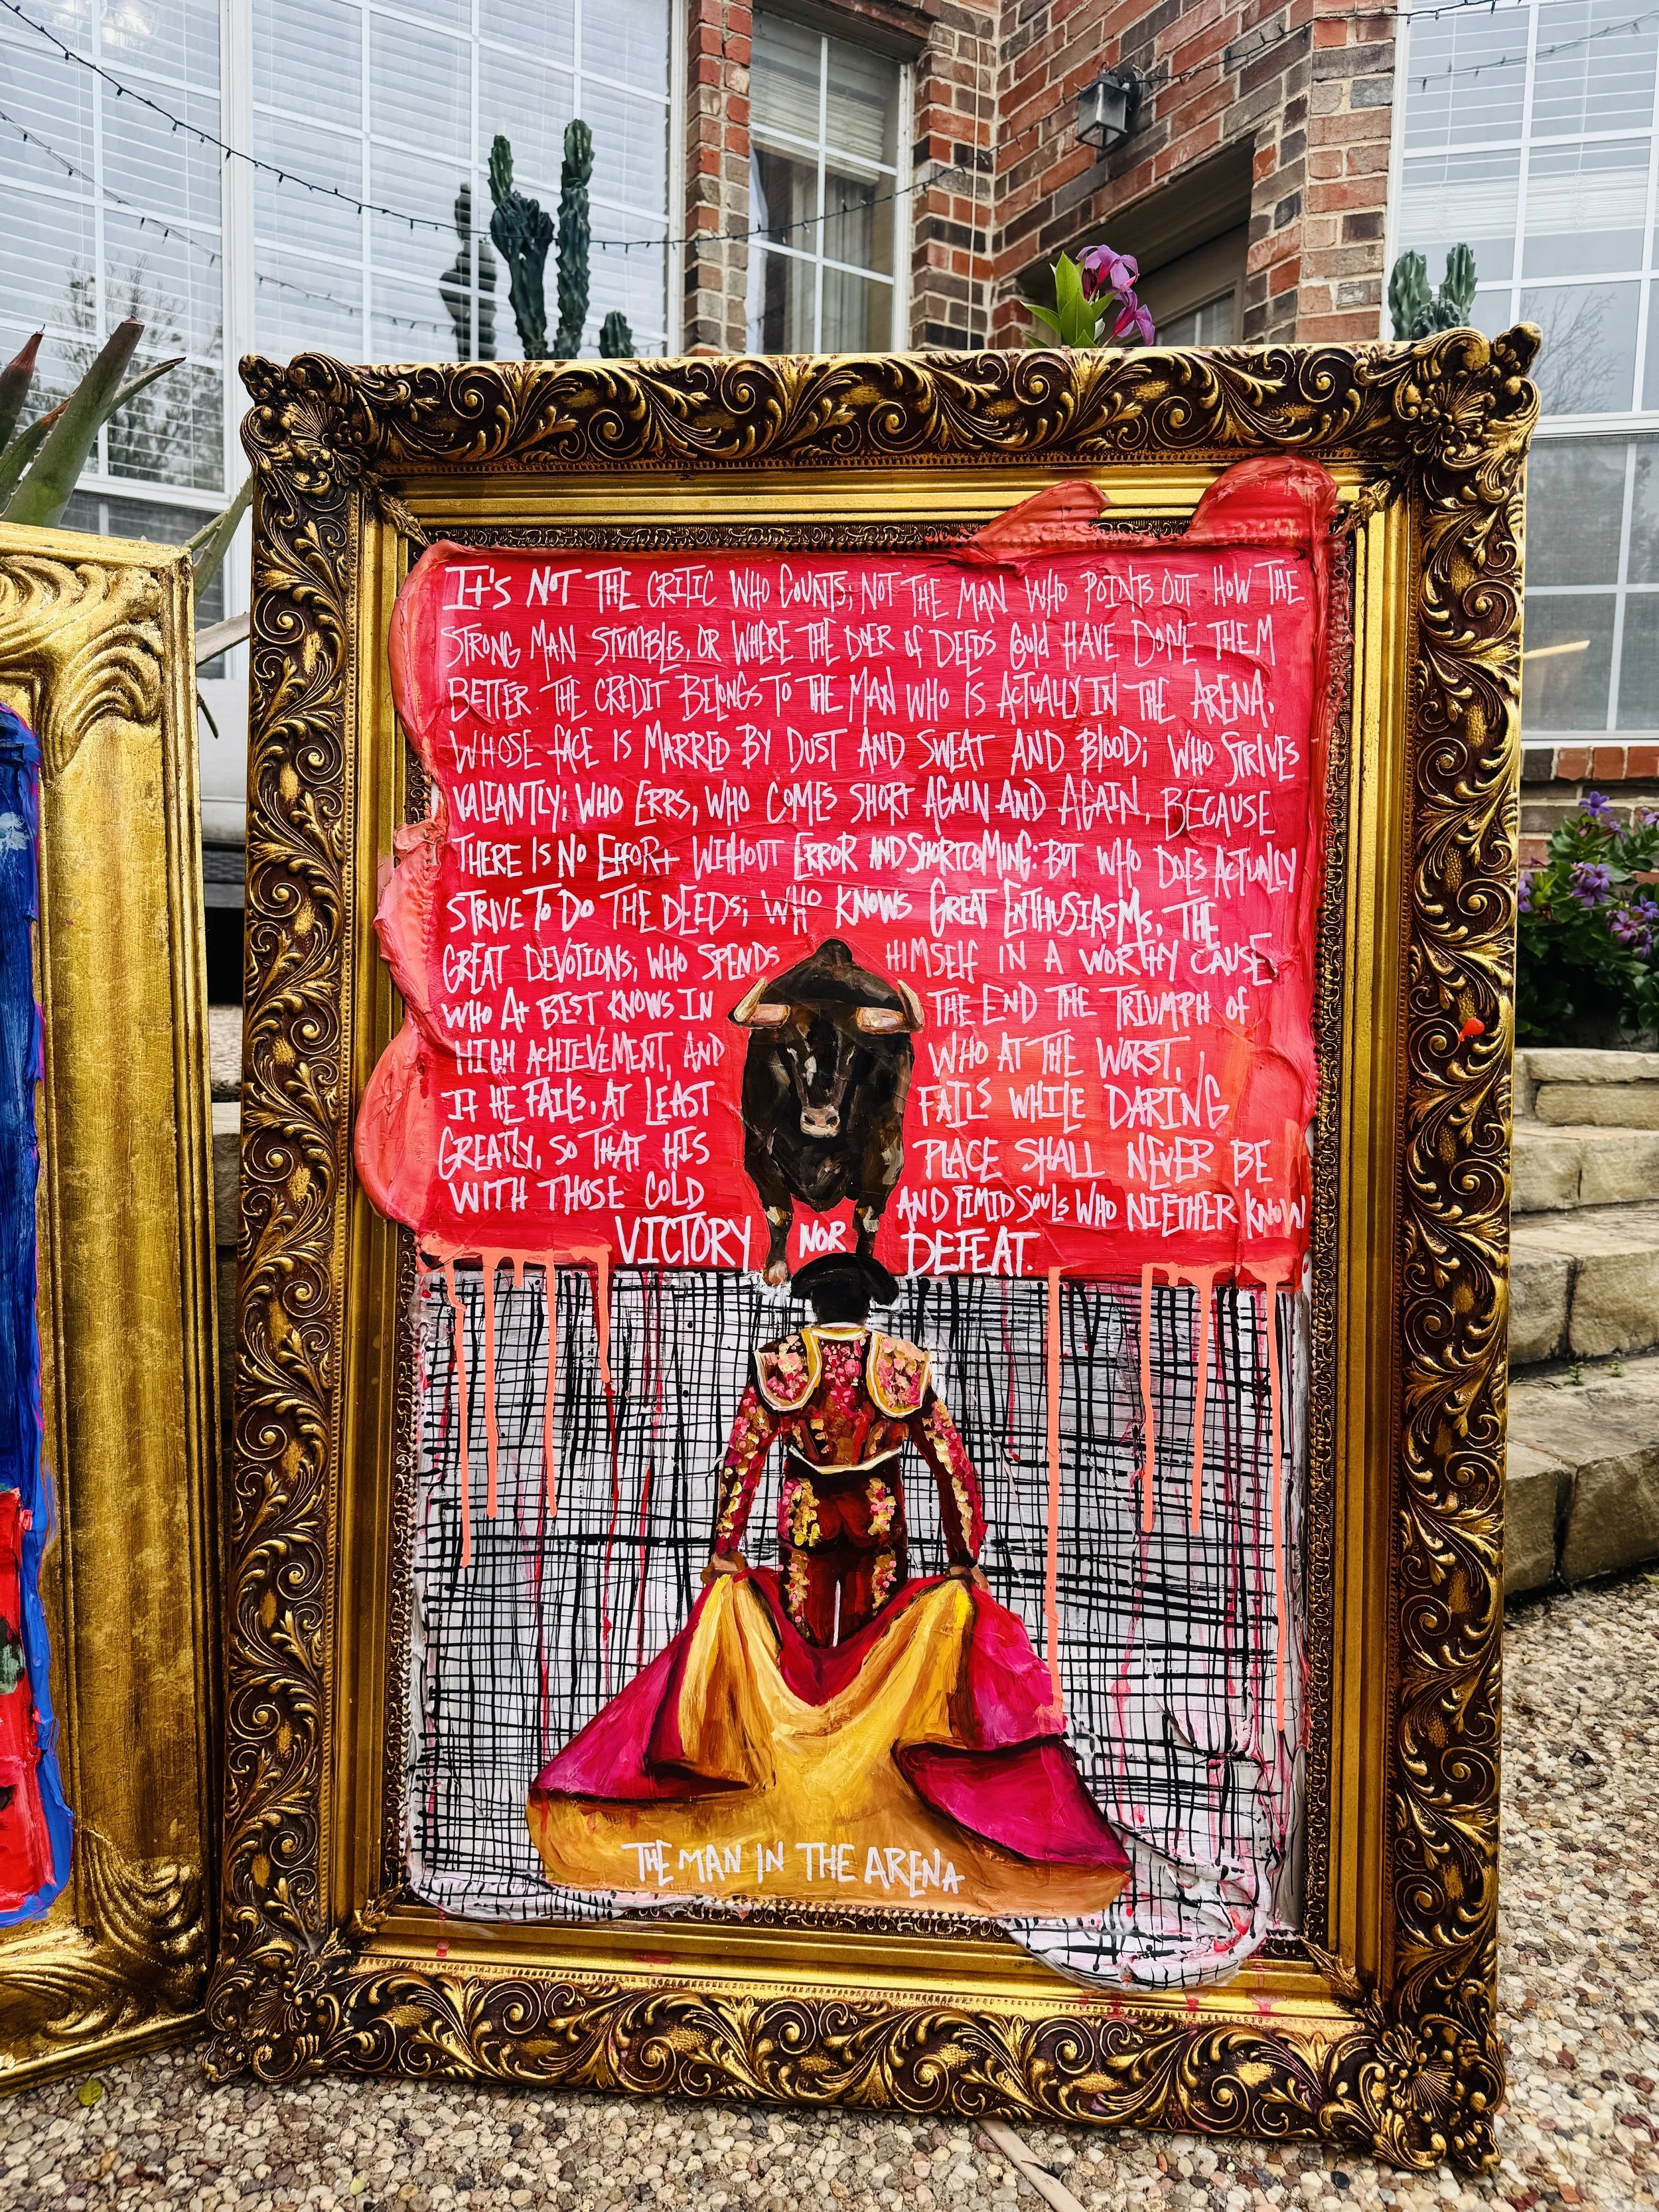 It's NOT THE CRITIC WHO COUNTS; NOT THE MAN WHO POINTS OUT HOW THE
STRONG MAN STUMBLES, OR WHERE THE DOER of DEEDS Could HAVE DONE THEM
BETTER. THE CREDIT BELONGS TO THE MAN WHO IS ACTUALLY IN THE ARENA.
WHOSE fACE IS MARRED BY DUST AND SWEAT AND BLOOD; WHO STRIVES
VALIANTLY; WHO ERRS, WHO COMES SHORT AGAIN AND AGAIN, BECAUSE
THERE IS NO EffORt WITHOUT ERROR AND SHORTCOMING; BUT WHO DOES ACTUALLY
STRIVE TO DO THE DEEDS; WHO KNOWS GREAT ENTHUSIASMS, THE
GREAT DEVOTIONS; WHO SPENDS HIMSELF IN A WORTHY CAUSE,
WHO At BEST KNOWS IN THE END THE TRIUMPH of
HIGH ACHIEVEMENT, AND WHO AT THE WORST,
If HE FAILS, AT LEAST FAILS WHILE DARING
GREATLY, SO THAT HIS PLACE SHALL NEVER BE
WITH THOSE COLD AND TIMID SOULS WHO NIETHER KNOW
VICTORY NOR DEFEAT.
THE MAN IN THE ARENA